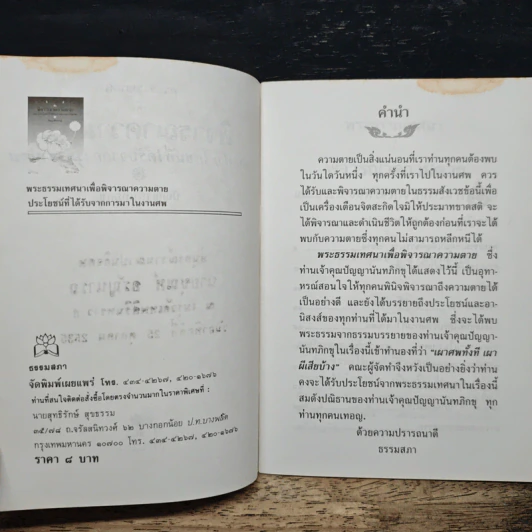 พระธรรมเทศนาเพื่อพิจารณาความตาย
ประโยชน์ที่ได้รับจากการมาในงานศพ
ธรรมสภา
จัดพิมพ์เผยแพร่ โทร. ๔๓๔-๔๒๖๗, ๔๒๐-๑๖๗๖
ท่านที่สนใจติดต่อสั่งซื้อโดยตรงจำนวนมากในราคาพิเศษที่ :
นายสุทธิรักษ์ สุขธรรม
๓๕/๗๘ ถ.จรัลสนิทวงศ์ ๖๒ บางกอกน้อย ป.ท.บางพลัด
กรุงเทพมหานคร ๑๐๗๐๐ โทร. ๔๓๔-๔๒๖๗, ๔๒๐-๑๖๗๖
ราคา ๘ บาท
คำนำ
ความตายเป็นสิ่งแน่นอนที่เราท่านทุกคนต้องพบ
ในวันใดวันหนึ่ง ทุกครั้งที่เราไปในงานศพ ควร
ได้รับและพิจารณาความตายในธรรมสังเวชข้อนี้เพื่อ
เป็นเครื่องเตือนจิตสะกิดใจมิให้ประมาทขาดสติ จะ
ได้พิจารณาและดำเนินชีวิตให้ถูกต้องก่อนที่เราจะได้
พบกับความตายซึ่งทุกคนไม่สามารถหลีกหนีได้
พระธรรมเทศนาเพื่อพิจารณาความตาย ซึ่ง
ท่านเจ้าคุณปัญญานันทภิกขุได้แสดงไว้นี้ เป็นอุทา-
หรณ์สอนใจให้ทุกคนพินิจพิจารณาถึงความตายได้
เป็นอย่างดี และยังได้บรรยายถึงประโยชน์และอา-
นิสงส์ของทุกท่านที่ได้มาในงานศพ ซึ่งจะได้พบ
พระธรรมจากธรรมบรรยายของท่านเจ้าคุณปัญญา-
นันทภิกขุในเรื่องนี้เข้าทำนองที่ว่า "เผาศพทั้งที เผา
ผีเสียบ้าง" คณะผู้จัดทำจึงหวังเป็นอย่างยิ่งว่าท่าน
คงจะได้รับประโยชน์จากพระธรรมเทศนาในเรื่องนี้
สมดังปณิธานของท่านเจ้าคุณปัญญานันทภิกขุ ทุก
ท่านทุกคนเทอญ.
ด้วยความปรารถนาดี
ธรรมสภา